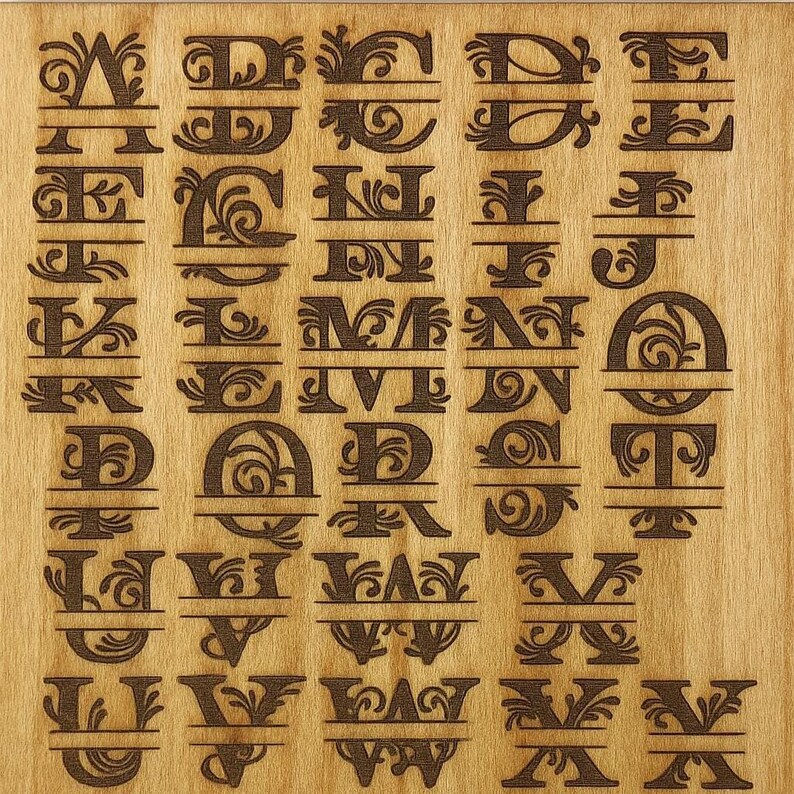 A B C D E
F G H I J
K L M N O
P Q R S T
U V W X
U V W X X